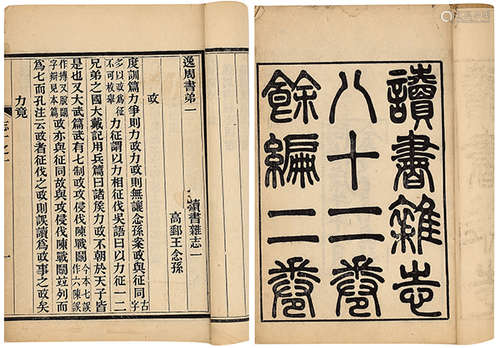 讀書雜志
八十二卷
餘編二卷
逸周書弟一
讀書雜志一
高郵王念孫
政
度訓篇力爭則力政力政則無讓念孫案政與征同古
多以政爲征不可枚舉力征謂以力相征伐吳語曰以力征一二
兄弟之國大戴記用兵篇曰諸侯力政不朝於天子皆
是也又大武篇武有七制政攻侵伐陳戰鬭今本七誤作六陳誤
作搏又脫鬭字辯見本篇政亦與征同故與攻侵伐陳戰鬭竝列而
爲七而孔注云政者征伐之政則誤讀爲政事之政矣
力竟